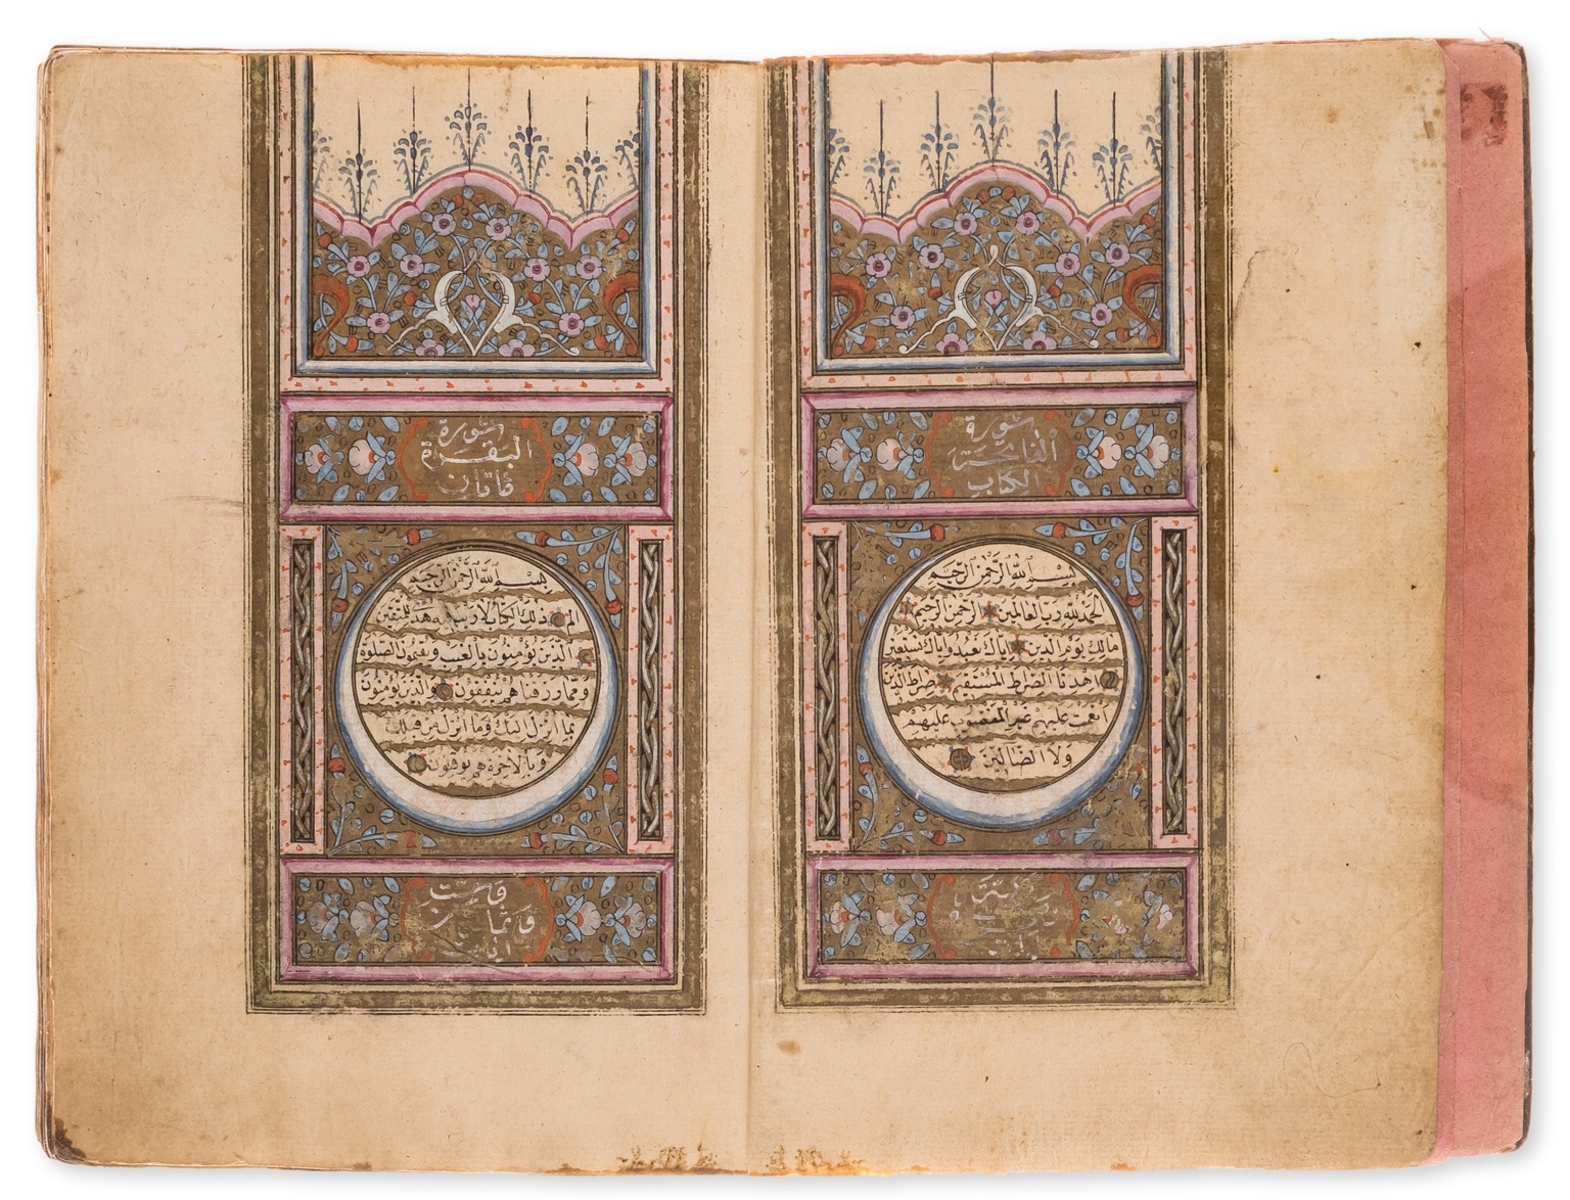 سورة
الفاتحة
الكتاب
بسم الله الرحمن الرحيم
الحمد لله رب العالمين الرحمن الرحيم
مالك يوم الدين اياك نعبد واياك نستعين
اهدنا الصراط المستقيم صراط الذين
انعمت عليهم غير المغضوب عليهم
ولا الضالين
سورة
البقرة
بسم الله الرحمن الرحيم
الم ذلك الكتاب لا ريب فيه هدى للمتقين
الذين يؤمنون بالغيب ويقيمون الصلوة
ومما رزقناهم ينفقون والذين يؤمنون
بما انزل اليك وما انزل من قبلك
وبالاخرة هم يوقنون